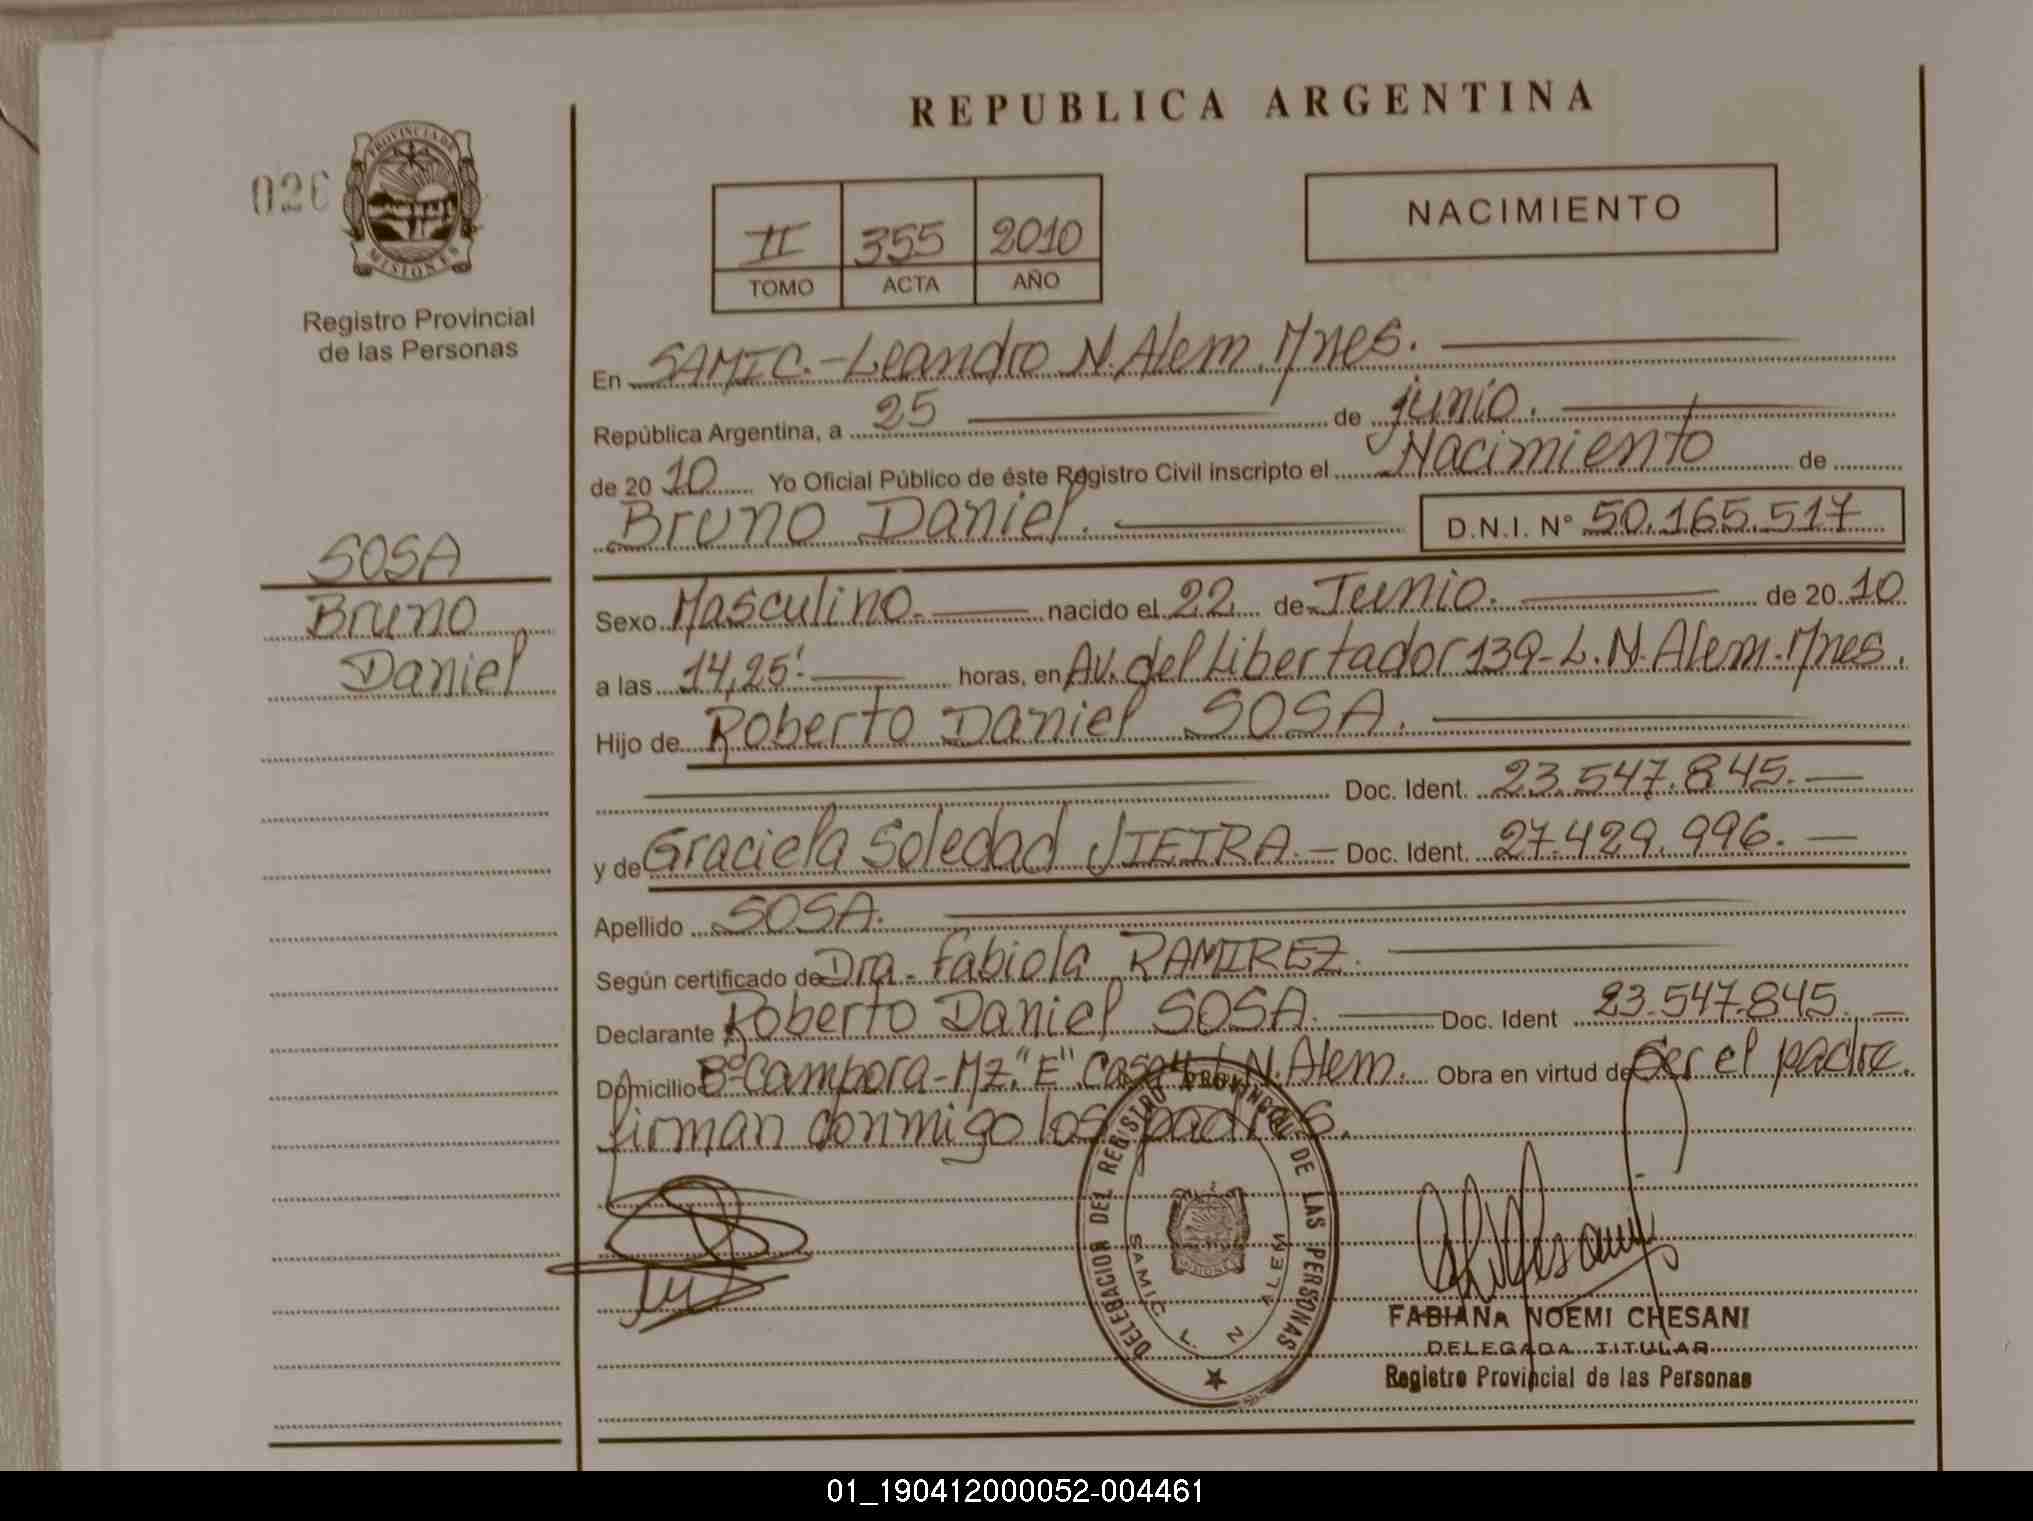 REPUBLICA ARGENTINA
026
PROVINCIA DE
MISIONES
Registro Provincial
de las Personas
II 355 2010
TOMO ACTA AÑO
NACIMIENTO
En SAMIC.-Leandro N. Alem Mnes.
República Argentina, a 25 de junio.
de 2010 Yo Oficial Público de éste Registro Civil inscripto el Nacimiento de
Bruno Daniel. D.N.I. N° 50.165.517
SOSA
Bruno
Daniel
Sexo Masculino. nacido el 22 de Junio. de 2010
a las 14,25'. horas, en Av. del Libertador 139-L.N. Alem. Mnes.
Hijo de Roberto Daniel SOSA.
Doc. Ident. 23.547.845.
y de Graciela Soledad Doc. Ident. 27.429.996.
Apellido SOSA.
Según certificado de Dra. Fabiola RAMIREZ.
Declarante Roberto Daniel SOSA. Doc. Ident 23.547.845.
Domicilio B° Campora-Mz."E". Casa L.N. Alem. Obra en virtud de Ser el padre.
firman conmigo los padres.
DELEGACION DEL REGISTRO PROVINCIAL DE LAS PERSONAS
SAMIC L. N. ALEM
MISIONES
FABIANA NOEMI CHESANI
DELEGADA TITULAR
Registro Provincial de las Personas
01_190412000052-004461